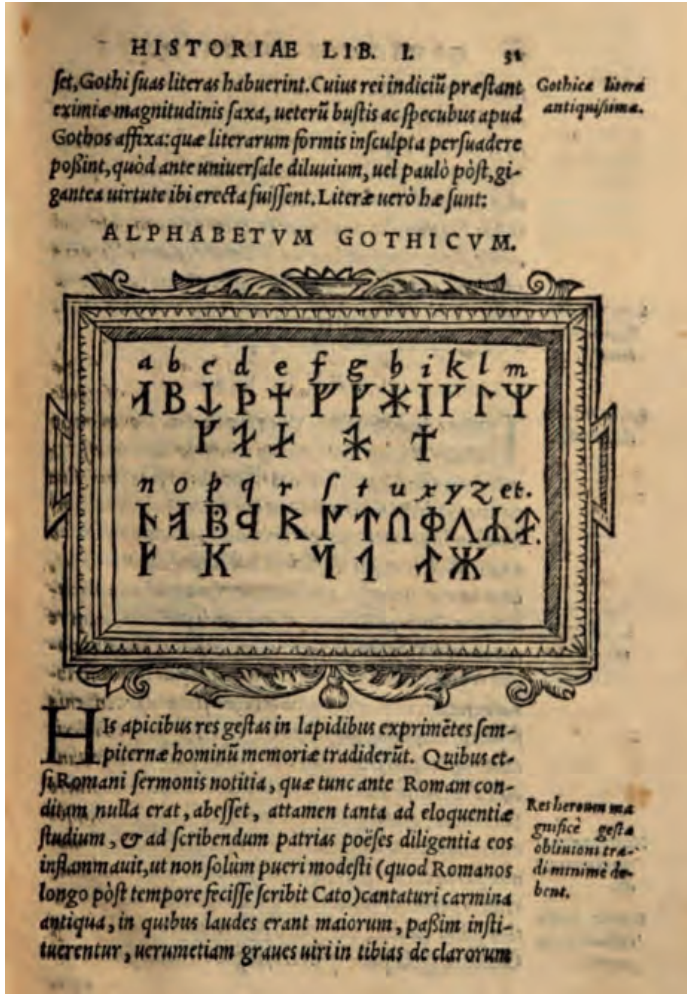 HISTORIAE LIB. I. 32
ſet, Gothi ſuas literas habuerint. Cuius rei indiciũ præſtant
eximiæ magnitudinis ſaxa, ueterũ buſtis ac ſpecubus apud
Gothos affixa: quæ literarum formis inſculpta perſuadere
poßint, quòd ante uniuerſale diluuium, uel paulò pòſt, gi-
gantea uirtute ibi erecta fuiſſent. Literæ uerò hæ ſunt:
Gothicæ literæ
antiquißimæ.
ALPHABETVM GOTHICVM.
a b c d e f g h i k l m
n o p q r ſ t u x y z et.
HIs apicibus res geſtas in lapidibus exprimẽtes ſem-
piternæ hominũ memoriæ tradiderũt. Quibus et-
ſi Romani ſermonis notitia, quæ tunc ante Romam con-
ditam nulla erat, abeſſet, attamen tanta ad eloquentiæ
ſtudium, & ad ſcribendum patrias poëſes diligentia eos
inflammauit, ut non ſolùm pueri modeſti (quod Romanos
longo pòſt tempore feciſſe ſcribit Cato) cantaturi carmina
antiqua, in quibus laudes erant maiorum, paßim inſti-
tuerentur, uerumetiam graues uiri in tibias de clarorum
Res heroum ma
gnificè geſtæ
obliuioni tra-
di minimè de-
bent.